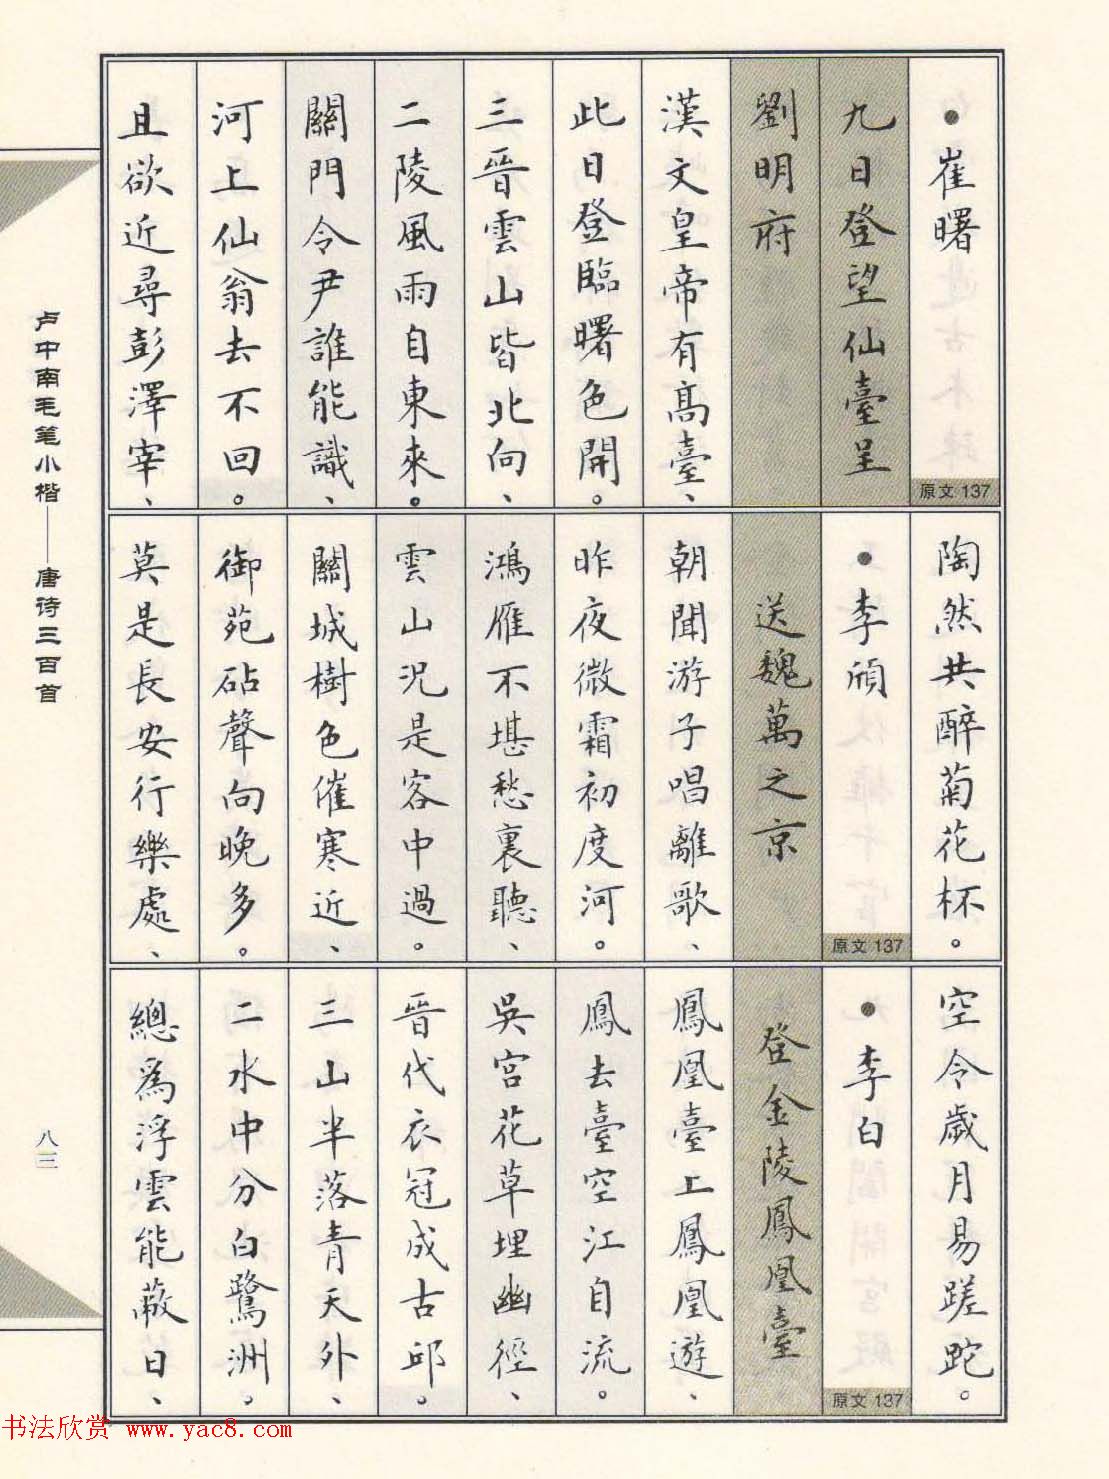 • 崔曙
原文 137
九日登望仙臺呈
劉明府
漢文皇帝有高臺、
此日登臨曙色開。
三晉雲山皆北向、
二陵風雨自東來。
關門令尹誰能識、
河上仙翁去不回。
且欲近尋彭澤宰、
陶然共醉菊花杯。
• 李頎
原文 137
送魏萬之京
朝聞游子唱離歌、
昨夜微霜初度河。
鴻雁不堪愁裏聽、
雲山況是客中過。
關城樹色催寒近、
御苑砧聲向晚多。
莫是長安行樂處、
空令歲月易蹉跎。
• 李白
原文 137
登金陵鳳凰臺
鳳凰臺上鳳凰遊、
鳳去臺空江自流。
吳宮花草埋幽徑、
晉代衣冠成古邱。
三山半落青天外、
二水中分白鷺洲。
總爲浮雲能蔽日、
卢中南毛笔小楷——唐诗三百首
八三
书法欣赏 www.yac8.com